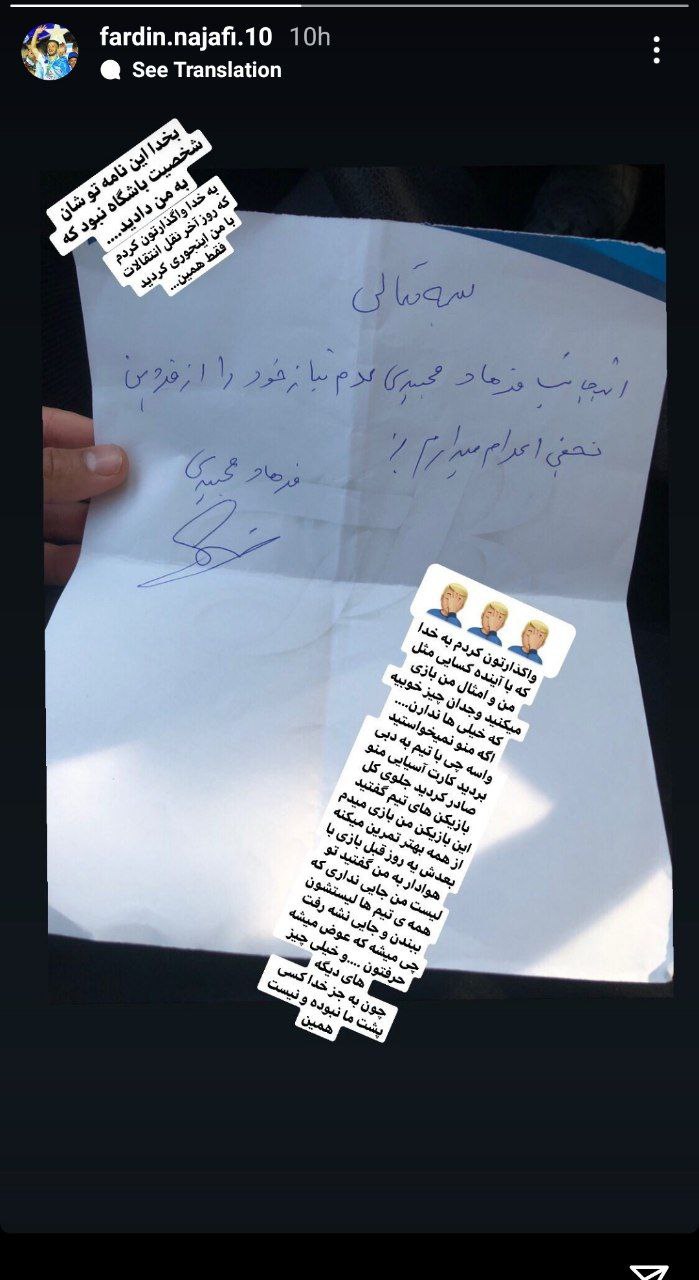 fardin.najafi.10 10h
See Translation
بخدا این نامه تو شان
شخصیت باشگاه نبود که
به من دادید....
به خدا واگذارتون کردم
که روز آخر نقل انتقالات
با من اینجوری کردید
فقط همین...
بسمه تعالی
اینجانب فرهاد مجیدی عدم نیاز خود را از فردین
نجفی اعلام میدارم
فرهاد مجیدی
🤦🏼‍♂️🤦🏼‍♂️🤦🏼‍♂️
واگذارتون کردم به خدا
که با آینده کسایی مثل
من و امثال من بازی
میکنید وجدان چیز خوبیه
که خیلی ها ندارن....
اگه منو نمیخواستید
واسه چی با تیم به دبی
بردید کارت آسیایی منو
صادر کردید جلوی کل
بازیکن های تیم گفتید
این بازیکن من بازی میدم
از همه بهتر تمرین میکنه
بعدش یه روز قبل بازی با
هوادار به من گفتید تو
لیست من جایی نداری که
همه ی تیم ها لیستشون
ببندن و جایی نشه رفت
چی میشه که عوض میشه
حرفتون ....و خیلی چیز
های دیگه
چون به جز خدا کسی
پشت ما نبوده و نیست
همین